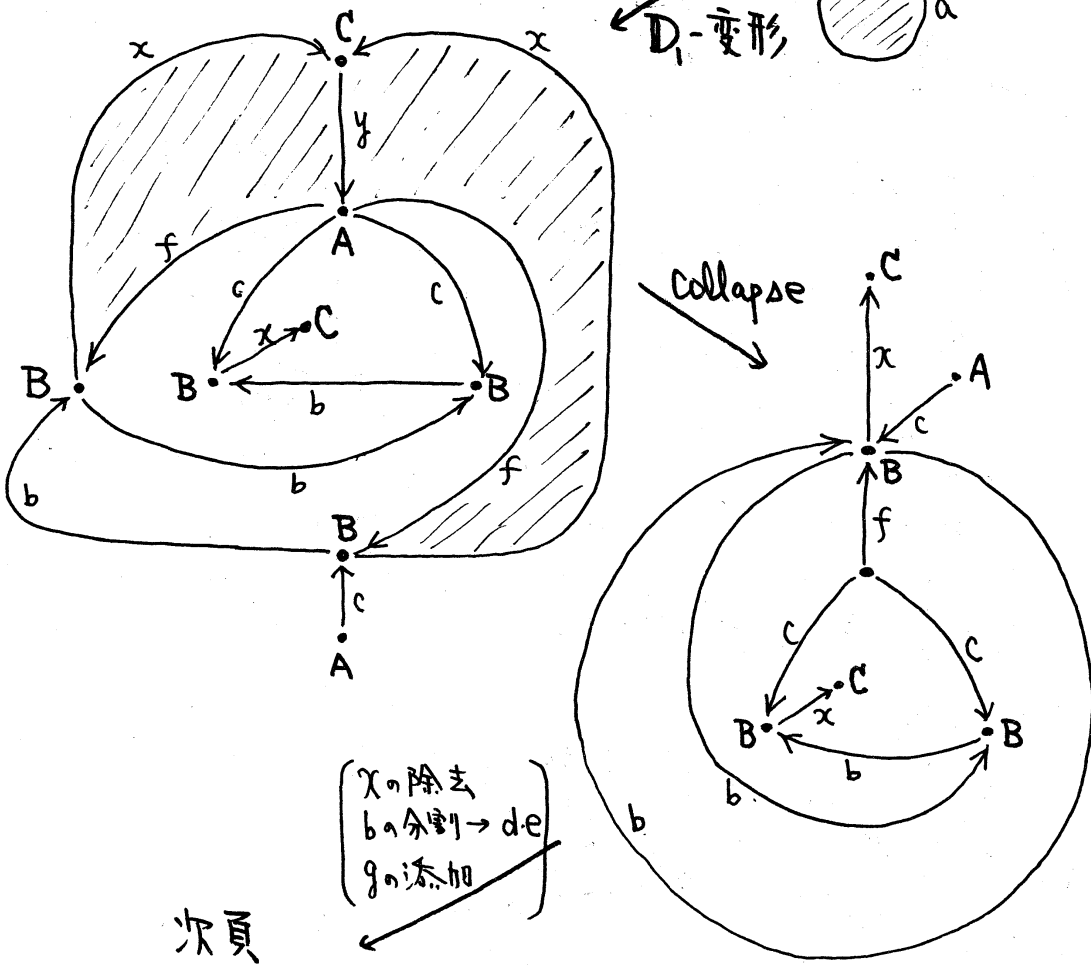 D₁-変形
a
C
x
x
y
A
f
c
c
x
C
B
B
B
b
f
b
b
B
c
A
collapse
C
x
A
c
B
f
c
c
C
x
B
B
b
b
b
xの除去
bの分割→d・e
gの添加
次頁